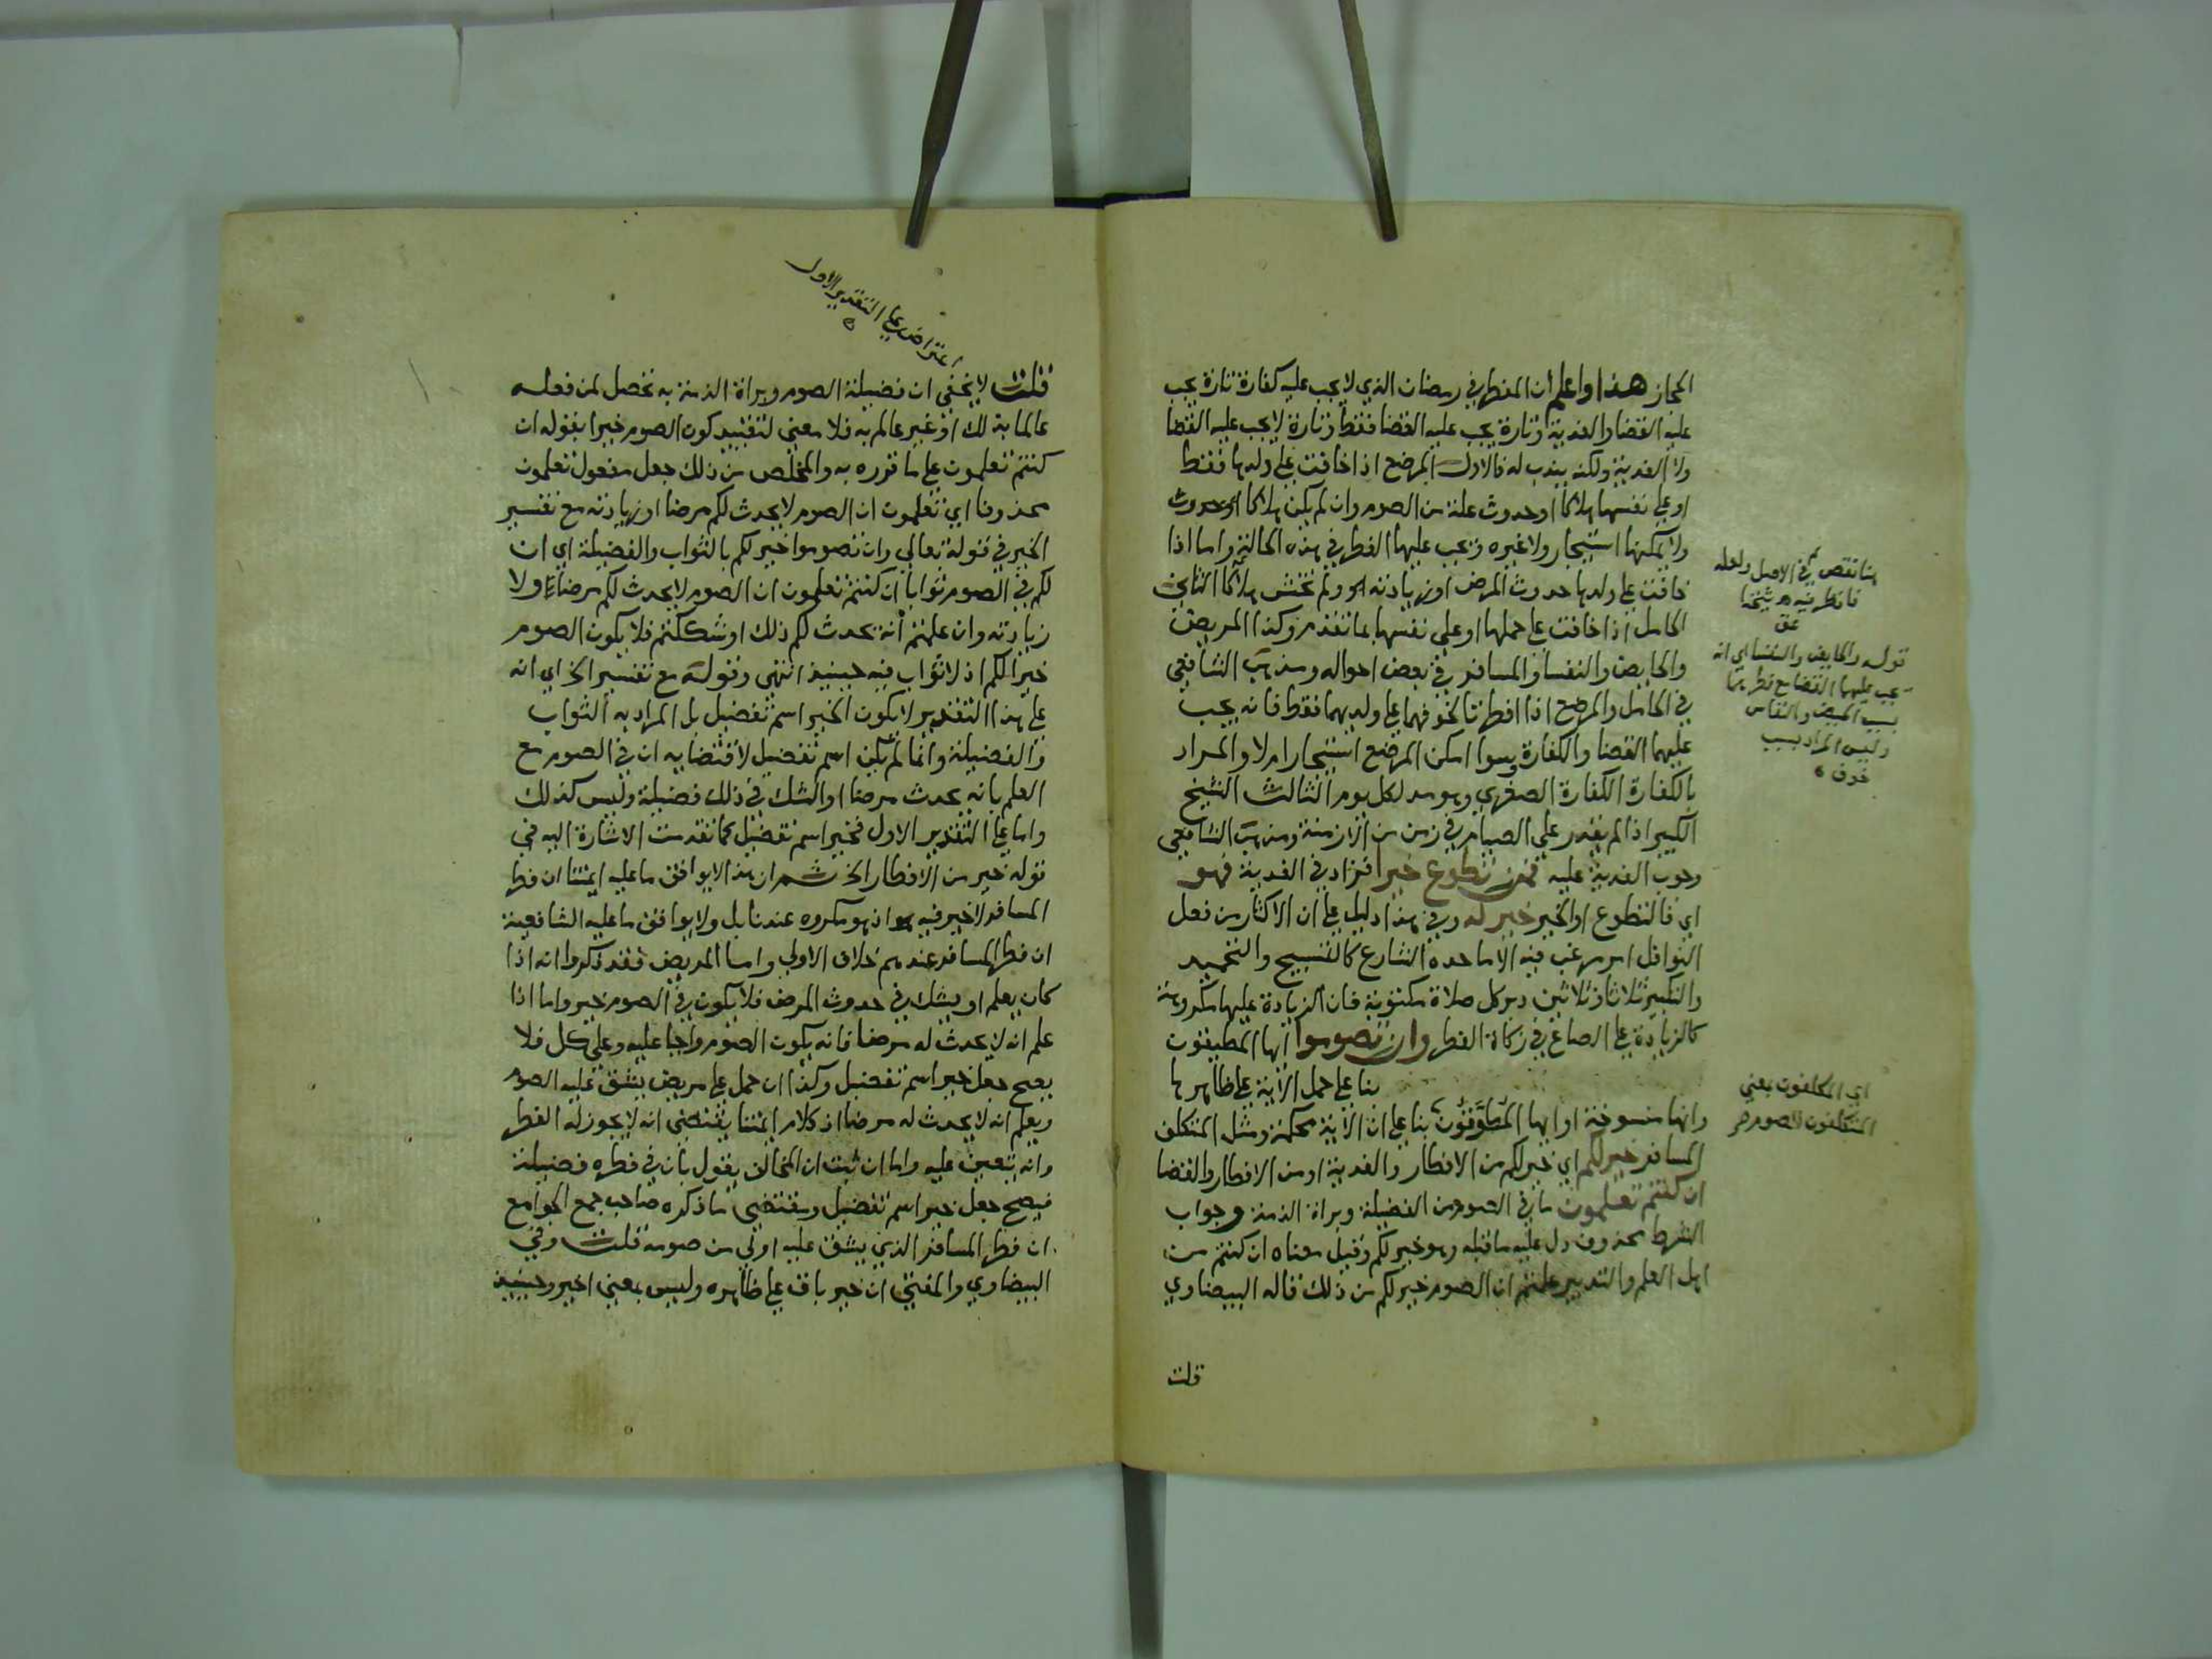 المجاز هذا واعلم ان المفطر في رمضان الذي لا يجب عليه كفارة تارة يجب
عليه القضا والفدية وتارة يجب عليه القضا فقط وتارة لا يجب عليه القضا
ولا الفدية ولكنه يندب له فالاول المرضع اذا خافت على ولدها فقط
او على نفسها هلاكا او حدوث علة من الصوم وان لم يكن هلاكا او حدوث
ولا يمكنها استيجار ولا غيره ويجب عليها الفطر في هذه الحالة واما اذا
خافت على ولدها حدوث المرض او زيادته ولم تخش هلاكا الثاني
الحامل اذا خافت على حملها او على نفسها بما تقدم وكذا المريض
والحايض والنفسا والمسافر في بعض احواله ومذهب الشافعي
في الحامل والمرضع اذا افطرتا لخوفهما على ولديهما فقط فانه يجب
عليهما القضا والكفارة وسوا امكن المرضع استيجار ام لا والمراد
بالكفارة الكفارة الصغرى وهو مد لكل يوم الثالث الشيخ
الكبير اذا لم يقدر على الصيام في زمن من الازمنة ومذهب الشافعي
وجوب الفدية عليه فمن تطوع خيرا فزاد في الفدية فهو
اي فالتطوع او الخير خير له وفي هذا دليل على ان الاكثار من فعل
النوافل امر مرغب فيه الا ما حده الشارع كالتسبيح والتحميد
والتكبير ثلاثا وثلاثين دبر كل صلاة مكتوبة فان الزيادة عليها مكروهة
كالزيادة على الصاع في زكاة الفطر وان تصوموا ايها المطيقون
بنا على حمل الاية على ظاهرها
وانها منسوخة او ايها المطوقون بنا على ان الاية محكمة ومثل المتكلف
المسافر خير لكم اي خير لكم من الافطار والفدية او من الافطار والقضا
ان كنتم تعلمون ما في الصوم من الفضيلة وبراة الذمة وجواب
الشرط محذوف دل عليه ما قبله وهو خير لكم وقيل معناه ان كنتم من
اهل العلم والتدبير علمتم ان الصوم خير لكم من ذلك قاله البيضاوي
قلت
هنا نقص في الاصل ولعله
فانظر فيه هـ شيخنا
عق
قوله والحايض والنفسا اي انه
يجب عليهما القضا مع فطرهما
بسبب الحيض والنفاس
وليس المراد بسبب
خوف
اي المكلفون يعني
المتكلفون للصوم هـ
اعتراض على التقدير الاول
قلت لا يخفى ان فضيلة الصوم وبراة الذمة به تحصل لمن فعله
عالما بذلك او غير عالم به فلا معنى لتقييد كون الصوم خيرا بقوله ان
كنتم تعلمون على ما قرره به والمخلص من ذلك جعل مفعول تعلمون
محذوفا اي تعلمون ان الصوم لا يحدث لكم مرضا او زيادته مع تفسير
الخير في قوله تعالى وان تصوموا خير لكم بالثواب والفضيلة اي ان
لكم في الصوم ثوابا ان كنتم تعلمون ان الصوم لا يحدث لكم مرضا ولا
زيادته وان علمتم انه يحدث لكم ذلك او شككتم فلا يكون الصوم
خيرا لكم اذ لا ثواب فيه حينيذ انتهى وقوله مع تفسير الخ اي انه
على هذا التقدير لا يكون الخير اسم تفضيل بل المراد به الثواب
والفضيلة وانما لم يكن اسم تفضيل لاقتضايه ان في الصوم مع
العلم بانه يحدث مرضا او الشك في ذلك فضيلة وليس كذلك
واما على التقدير الاول فخير اسم تفضيل كما تقدمت الاشارة اليه في
قوله خير من الافطار الخ ثم ان هذا لا يوافق ما عليه ايمتنا ان فطر
المسافر لا خير فيه اذ هو مكروه عندنا بل ولا يوافق ما عليه الشافعية
ان فطر المسافر عندهم خلاف الاولى واما المريض فقد ذكروا انه اذا
كان يعلم او يشك في حدوث المرض فلا يكون في الصوم خير واما اذا
علم انه لا يحدث له مرضا فانه يكون الصوم واجبا عليه وعلى كل فلا
يصح جعل خير اسم تفضيل وكذا ان حمل على مريض يشق عليه الصوم
ويعلم انه لا يحدث له مرضا اذ كلام ايمتنا يقتضي انه لا يجوز له الفطر
وانه يتعين عليه واما ان ثبت ان المخالف يقول بان في فطره فضيلة
فيصح جعل خير اسم تفضيل ومقتضى ما ذكره صاحب جمع الجوامع
ان فطر المسافر الذي يشق عليه اولى من صومه قلت وفي
البيضاوي والمفتي ان خير باق على ظاهره وليس بمعنى اخير وحينيذ